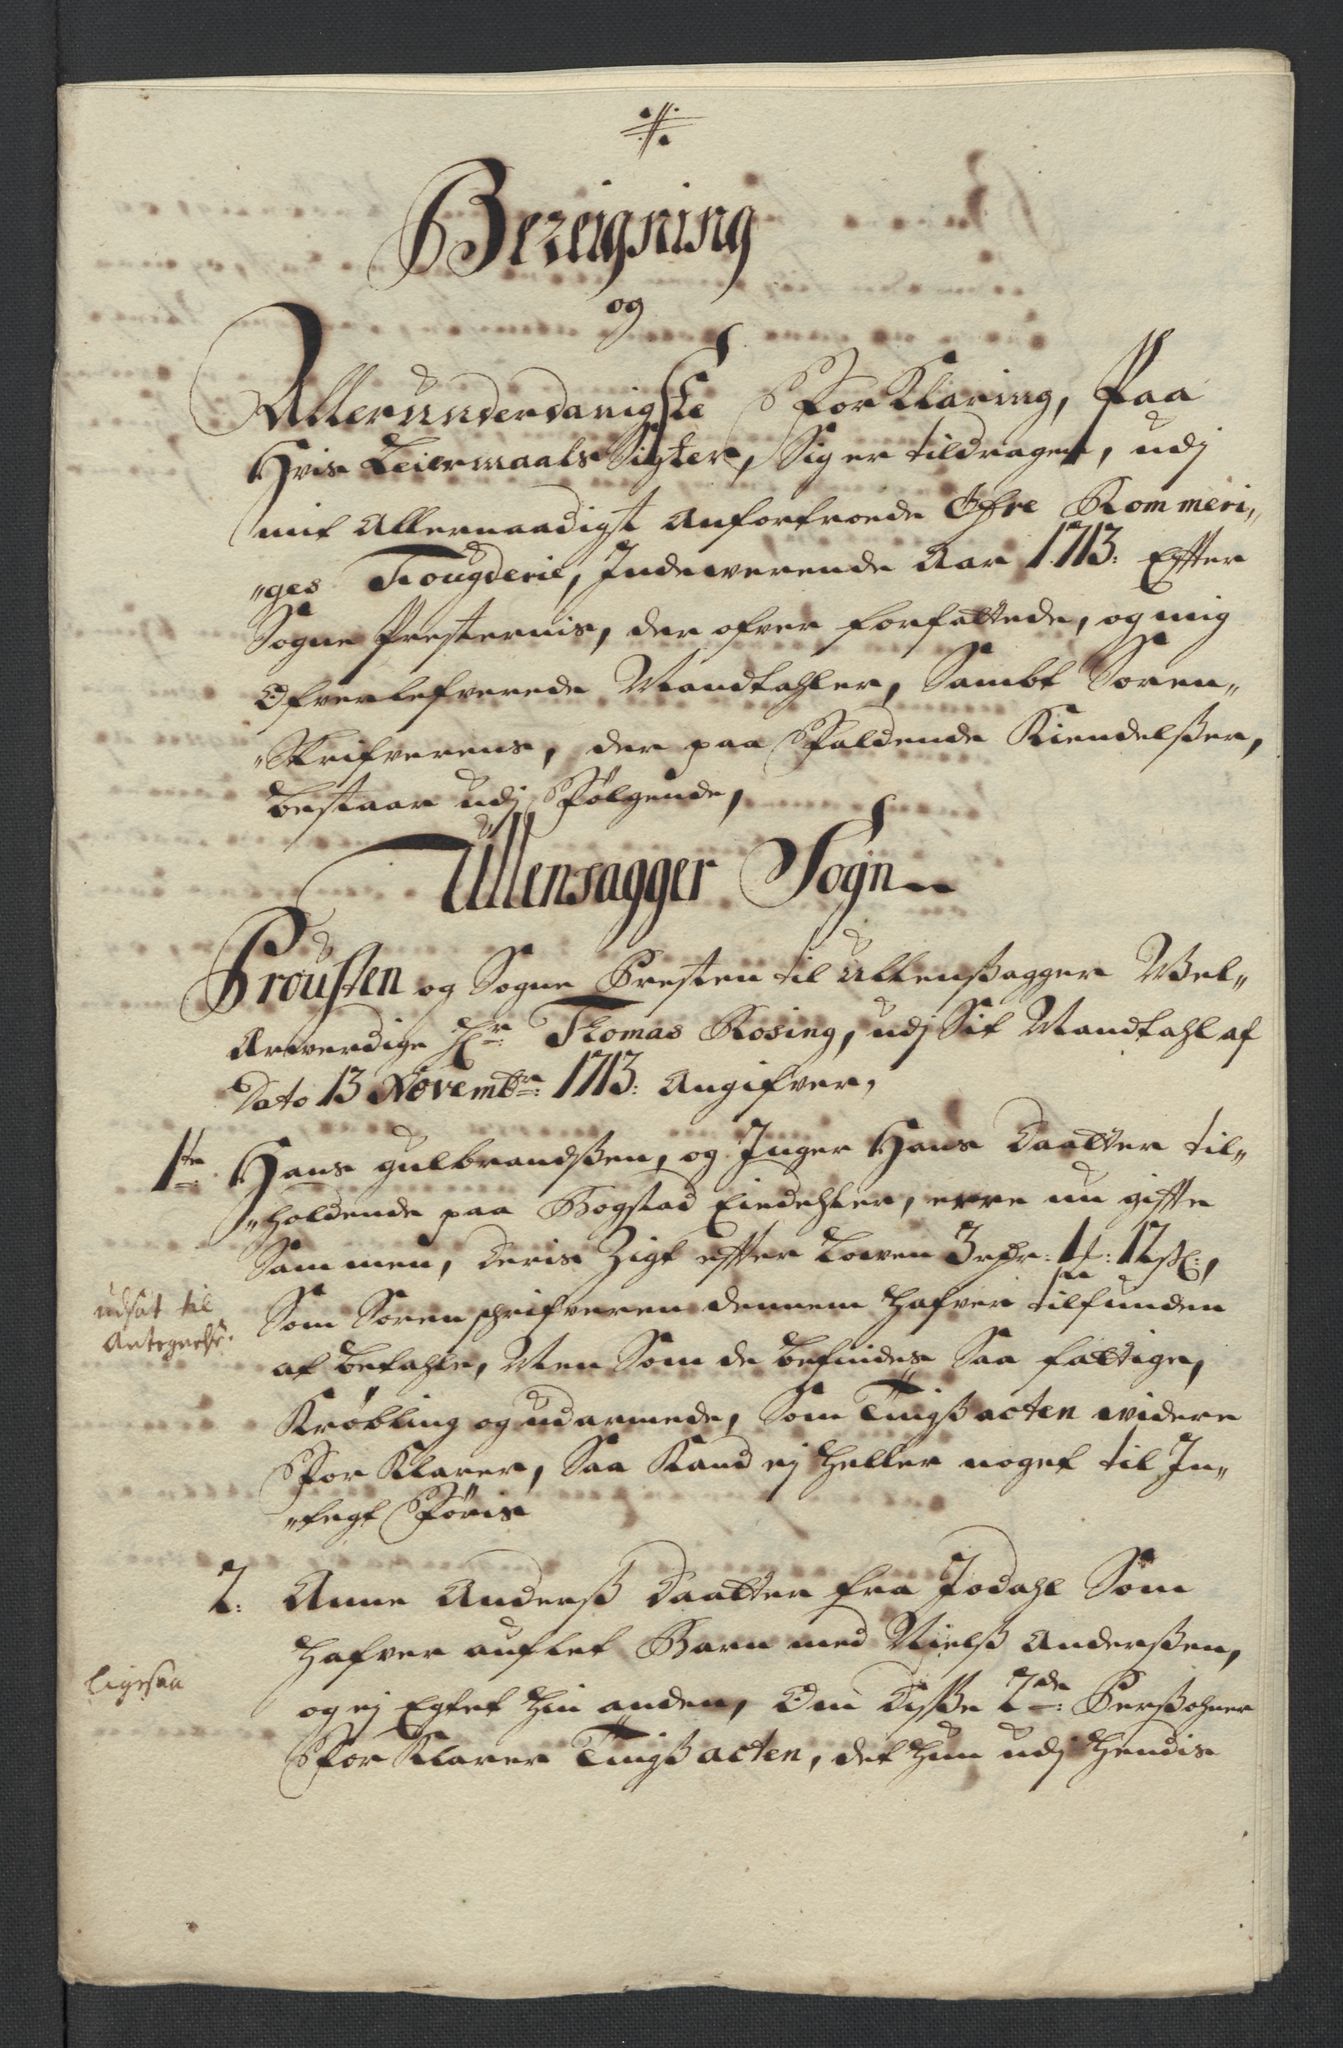 Bereigning
og
Allerunderdanigste Forklaring, Paa
Hvis Leiermaals Sigter, Sig er tildragen, udj
mit Allernaadigst Anfortroede Øfre Rommeri„
„ges Fougderie, Indeverende Aar 1713: Effter
Sogne Presternis, der ofver forfattede, og mig
Ofverlefverede Mandtahler, Sambt Soren„
„Skrifverens, der paa Faldende Kiendelßer,
bestaar udj Følgende,
Ullensagger Sogn
Prousten og Sogne Presten til Ullenßagger Wel„
Arverdige Hr: Thomas Rosing, udj Sit Mandtahl af
Dato 13 Novembr: 1713: Angifver,
1te: Hans gulbrandßen, og Inger Hans Daatter til„
„holdende paa Bogstad Eiedehler, ere nu gifte
Sammen, Deris Sigt effter Lowen 3 rdr: 1 f: 12 ß:,
Som Sorenschrifveren dennem hafver tilfunden
at betahle, Men Som de befindes Saa fattige,
Krøbling og udarmede, Som Tingßacten widere
Forklarer, Saa Kand ej heller noget til In„
„tegt Føris
udsat til
Antegnelse.
2: Anne Anderß Daatter fra Jodahl Som
hafver auflet Barn med Nielß Anderßen,
og ej Egtet hin anden, Om Diße 2de: Perßohner
Forklarer Tingßacten, det hun udj hendis
ligesaa